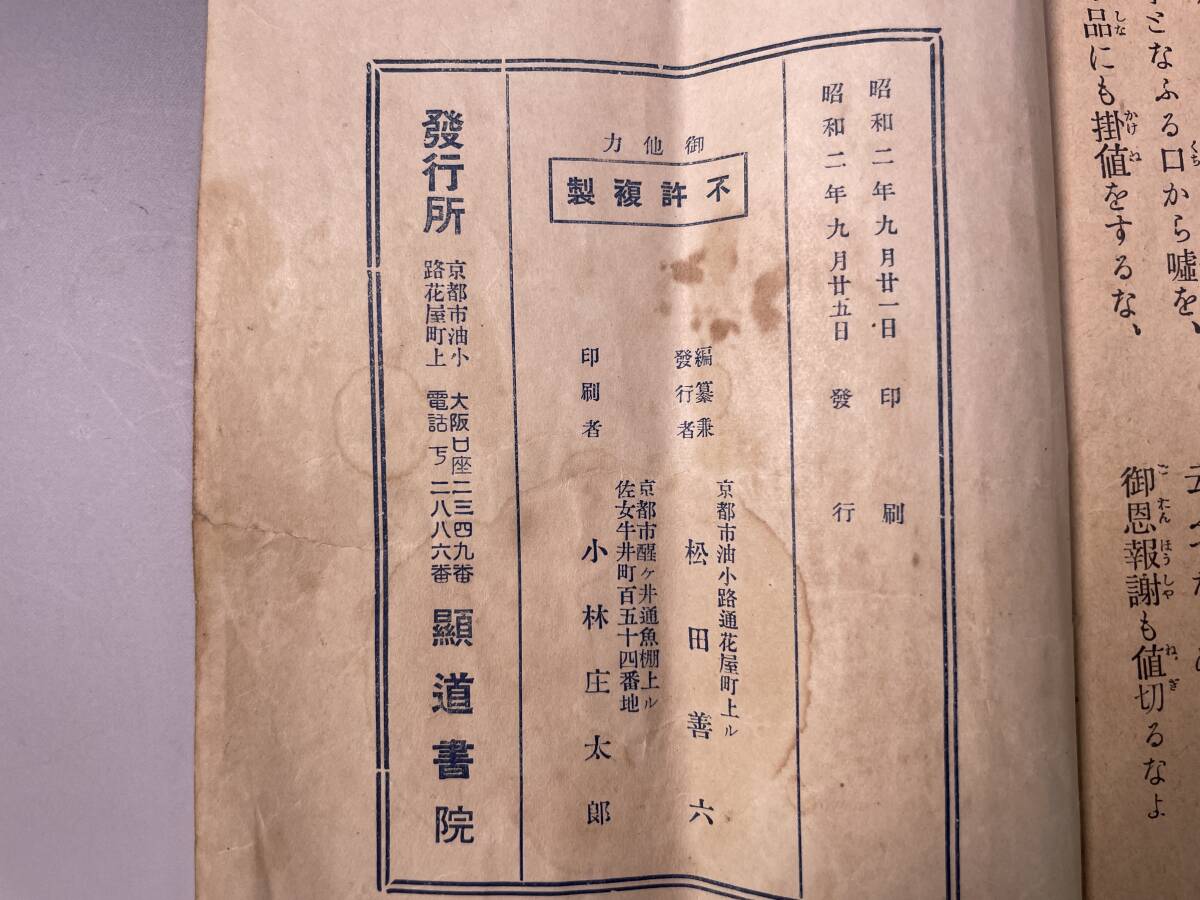 となふる口から噓を、
品にも掛値をするな、
御恩報謝も値切るなよ
昭和二年九月廿一日印刷
昭和二年九月廿五日發行
御他力
不許複製
編纂兼
發行者
京都市油小路通花屋町上ル
松田善六
印刷者
京都市醒ヶ井通魚棚上ル
佐女牛井町百五十四番地
小林庄太郎
發行所
京都市油小
路花屋町上
大阪口座二三四九番
電話下二八八六番
顯道書院